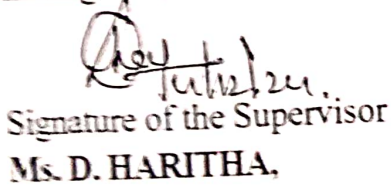 Signature of the Supervisor
Ms. D. HARITHA,